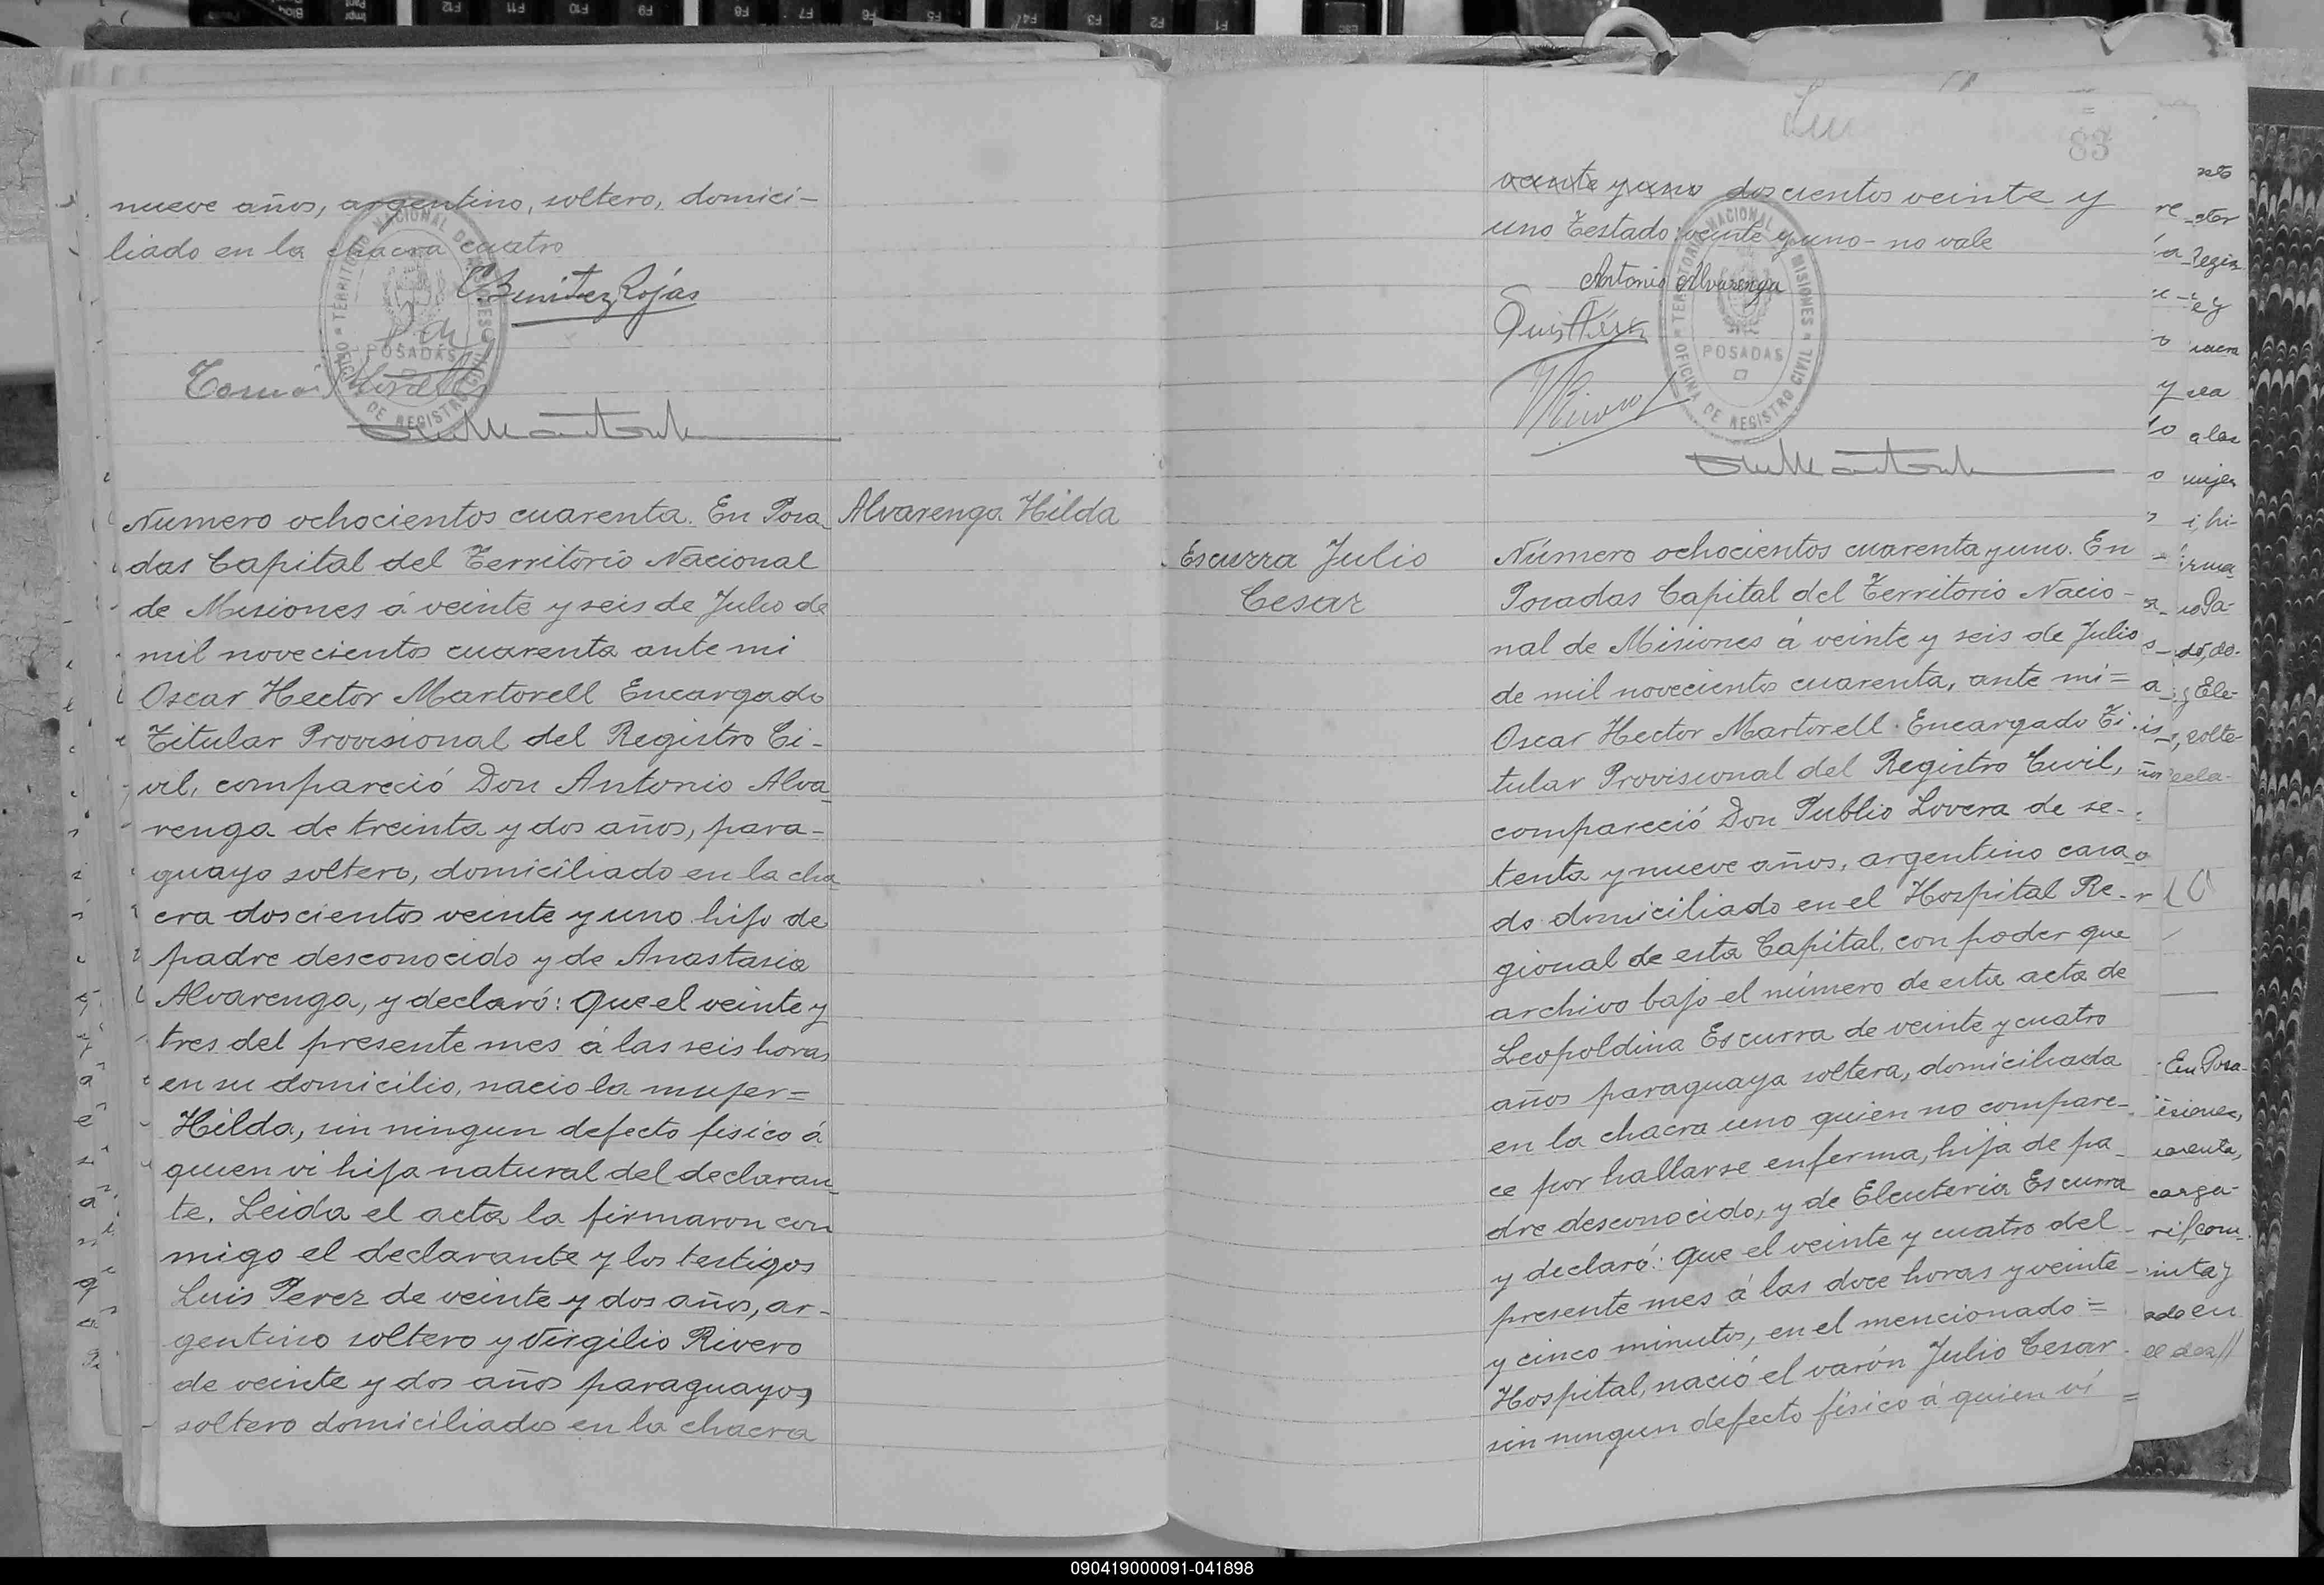 nueve años, argentino, soltero, domici-
liado en la chacra cuatro
C. Benitez Rojas
TERRITORIO NACIONAL DE MISIONES
POSADAS
OFICINA DE REGISTRO CIVIL
Numero ochocientos cuarenta. En Posa-
das Capital del Territorio Nacional
de Misiones á veinte y seis de Julio de
mil novecientos cuarenta ante mi
Oscar Hector Martorell Encargado
Titular Provisional del Registro Ci-
vil, compareció Don Antonio Alva-
renga de treinta y dos años, para-
guayo soltero, domiciliado en la cha
cra doscientos veinte y uno hijo de
padre desconocido y de Anastasia
Alvarenga, y declaró: Que el veinte y
tres del presente mes á las seis horas
en su domicilio, nacio la mujer=
Hilda, sin ningun defecto fisico á
quien vi hija natural del declaran-
te. Leida el acta la firmaron con
migo el declarante y los testigos
Luis Perez de veinte y dos años, ar-
gentino soltero y Virgilio Rivero
de veinte y dos años paraguayos,
soltero domiciliados en la chacra
Alvarenga Hilda
83
veinte y uno doscientos veinte y
uno Testado: veinte y uno - no vale
Antonio Alvarenga
Luis Pérez
VRivero
TERRITORIO NACIONAL DE MISIONES
POSADAS
OFICINA DE REGISTRO CIVIL
Escurra Julio
Cesar
Número ochocientos cuarenta y uno. En
Posadas Capital del Territorio Nacio-
nal de Misiones á veinte y seis de Julio
de mil novecientos cuarenta, ante mi=
Oscar Hector Martorell Encargado Ti-
tular Provisional del Registro Civil,
compareció Don Publio Lovera de se-
tenta y nueve años, argentino casa-
do domiciliado en el Hospital Re-
gional de esta Capital, con poder que
archivo bajo el número de esta acta de
Leopoldina Escurra de veinte y cuatro
años paraguaya soltera, domiciliada
en la chacra uno quien no compare-
ce por hallarse enferma, hija de pa-
dre desconocido, y de Eleuteria Escurra
y declaró: Que el veinte y cuatro del
presente mes á las doce horas y veinte
y cinco minutos, en el mencionado=
Hospital, nació el varón Julio Cesar
sin ningun defecto físico á quien vi =
090419000091-041898